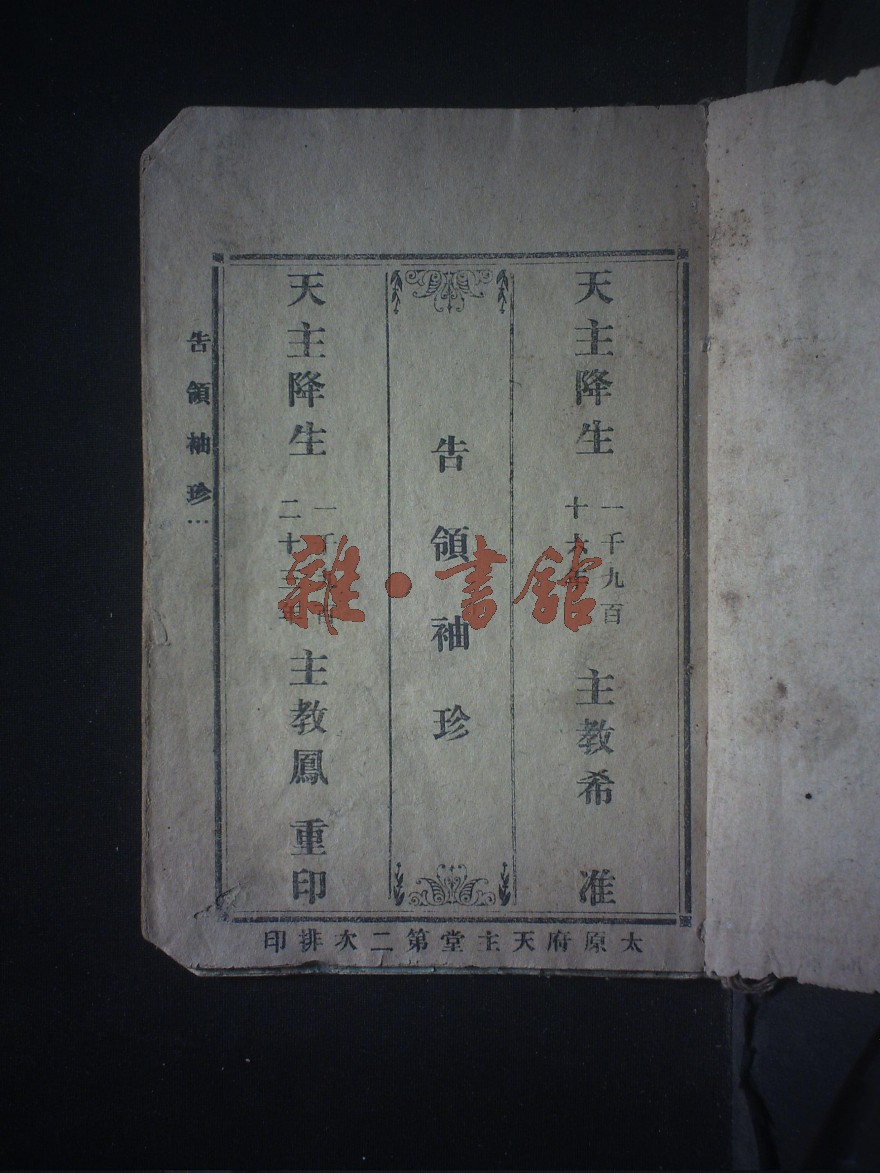 天主降生
一千九百
十六年
主教希 准
告領袖珍
天主降生
一千九百
二十三年
主教鳳 重印
告領袖珍…
太原府天主堂第二次排印
雜·書館